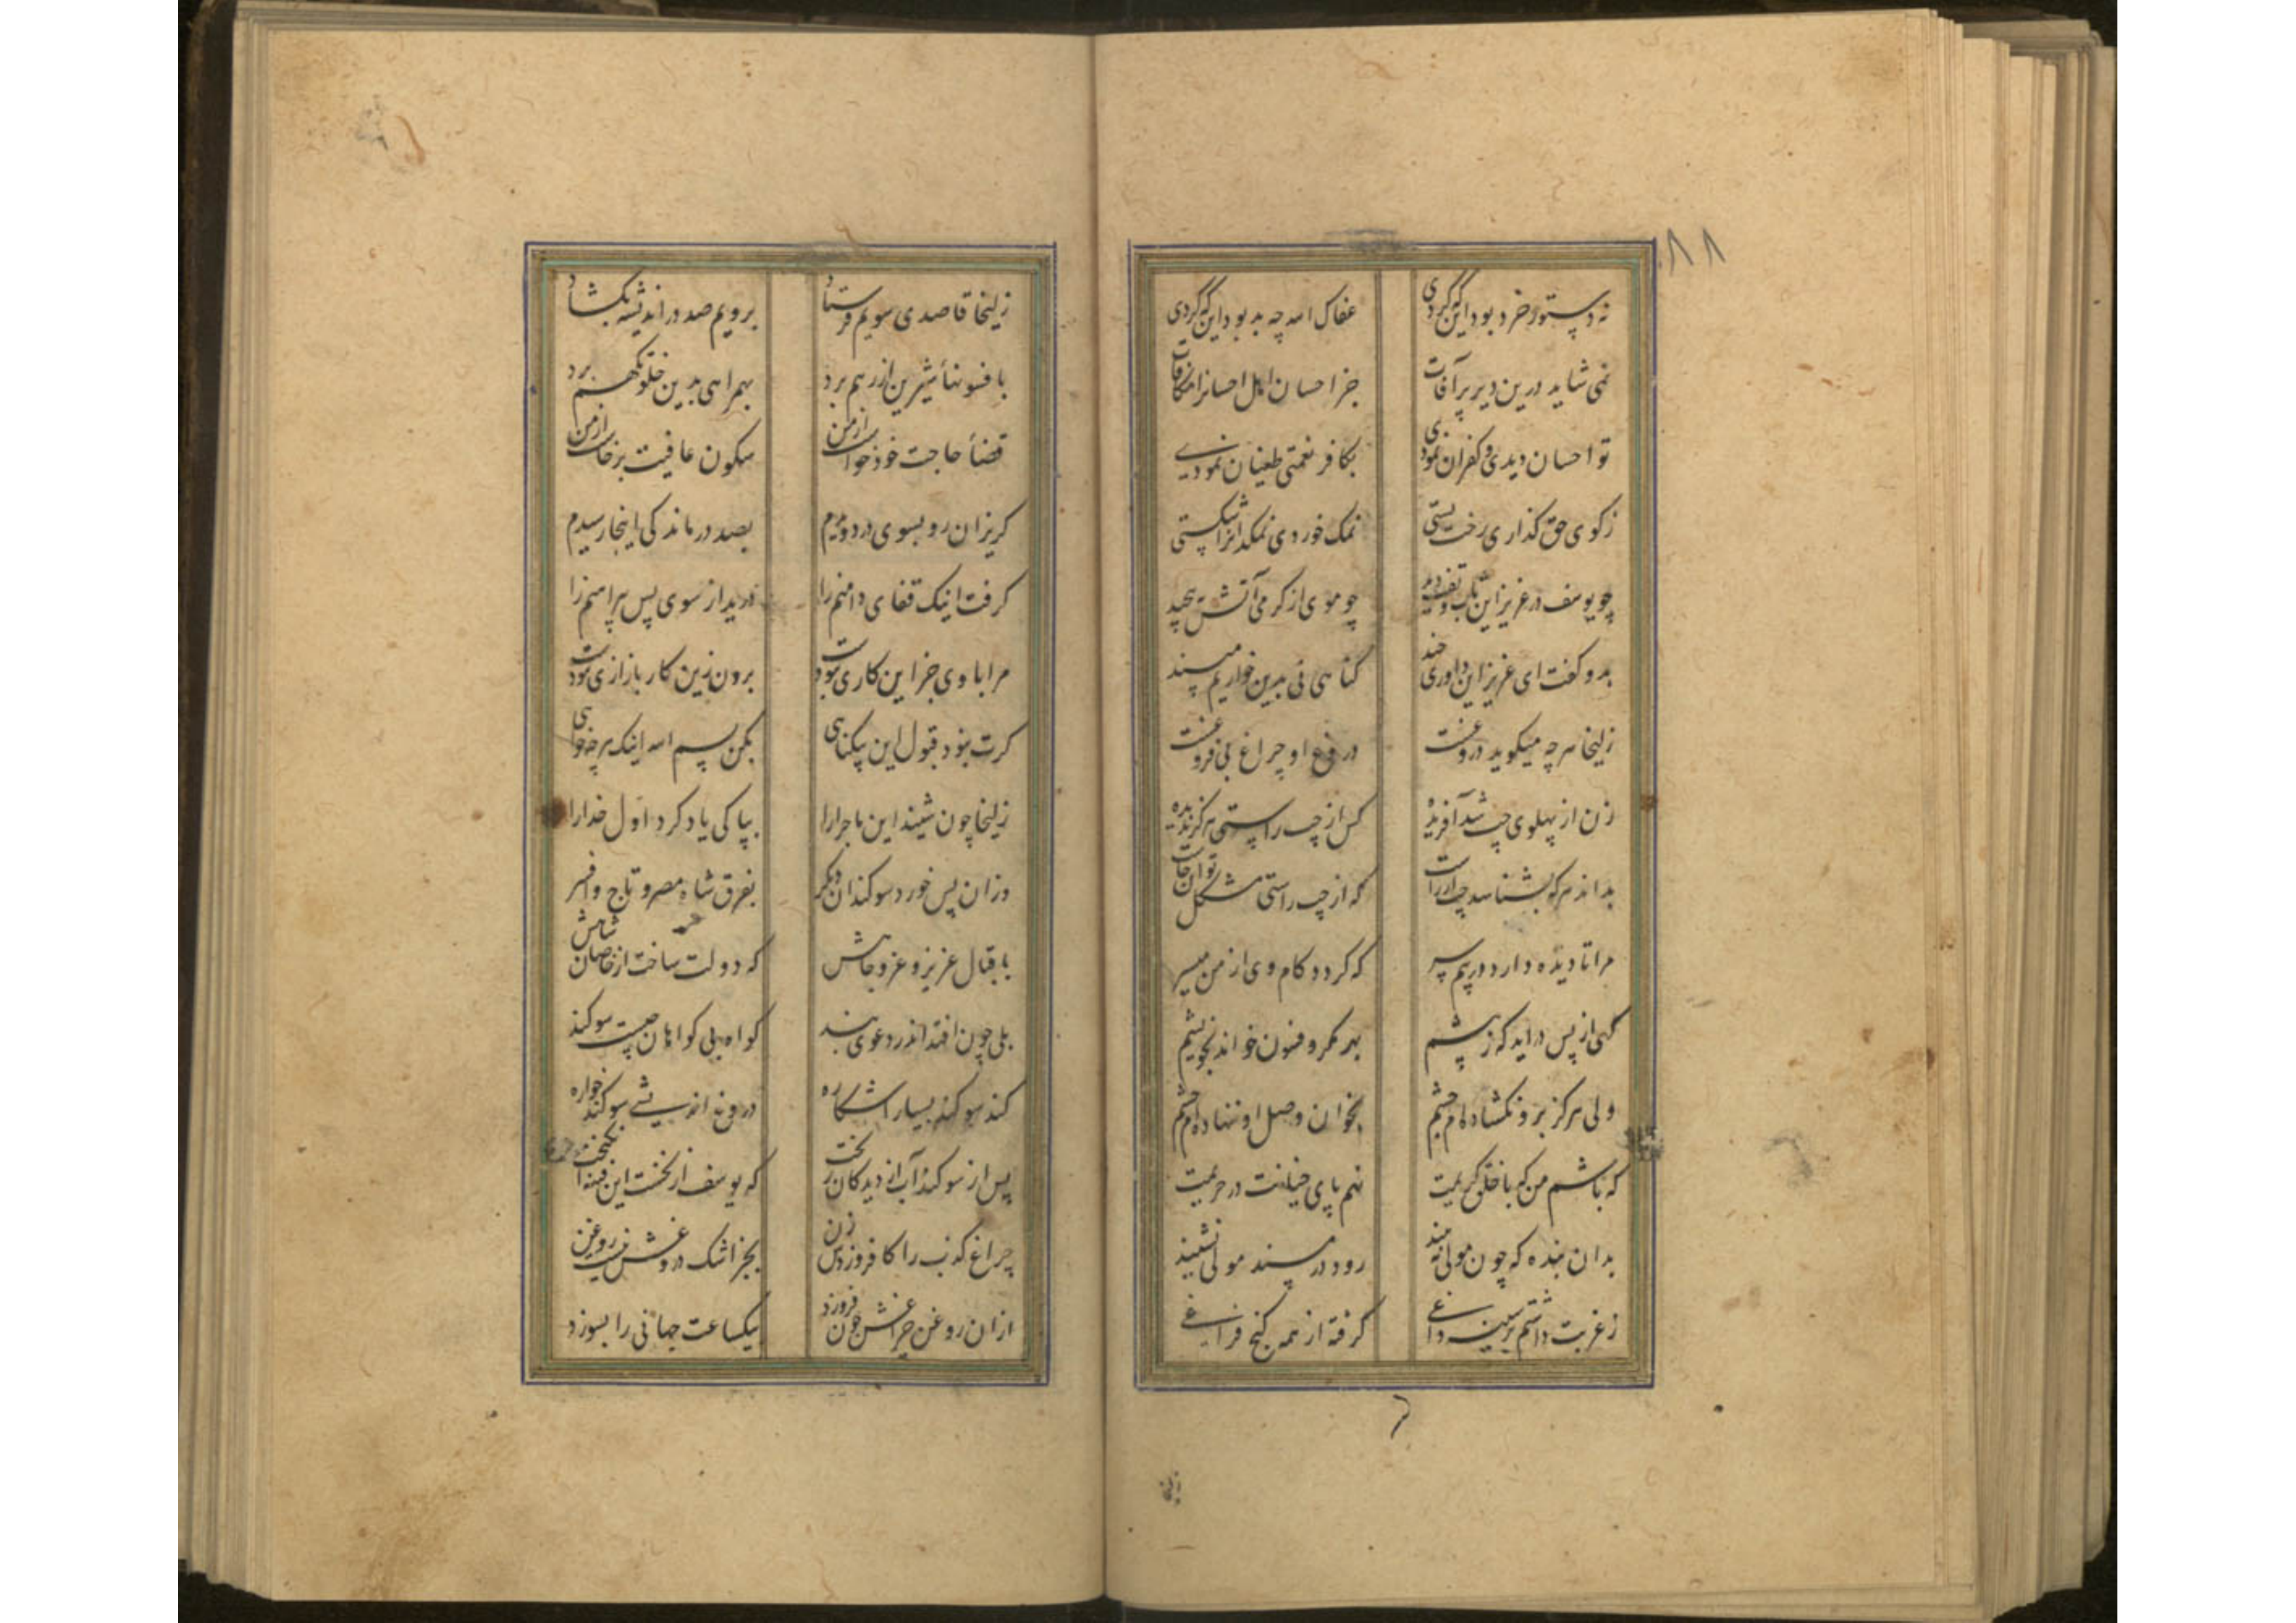 ٨٨
نه دستور خرد بود این که کردی عفاک الله چه بد بود این که کردی
نمی شاید درین دیر پر آفات جز احسان اهل احسانرا مکافات
تو احسان دیدی و کفران نمودی بکافر نعمتی طغیان نمودی
ز کوی حق گذاری رخت بستی نمک خوردی نمکدانرا شکستی
چو یوسف از عزیز این تاب و تف دید چو موی از گرمی آتش بپیچید
بدو گفت ای عزیز این داوری چند گناهی نی بدین خواریم مپسند
زلیخا هر چه میگوید دروغست دروغ او چراغ بی فروغست
زن از پهلوی چپ شد آفریده کس از چپ راستی هرگز ندیده
بداند هر که بشناسد چپ از راست که از چپ راستی مشکل توان خاست
مرا تا دیده دارد در پیم سر که گردد کام وی از من میسر
گهی از پس درآید گه ز پیشم بهر مکر و فنون خواند بخویشم
ولی هرگز برو نگشاده ام چشم بخوان وصل او ننهاده ام چشم
که باشم من که با خلق کریمت نهم پای خیانت در حریمت
بدان بنده که چون مولی نه بیند رود در مسند مولی نشیند
ز غربت داشتم بر سینه داغی گرفته از همه کنج فراغی
زلیخا
زلیخا قاصدی سویم فرستاد برویم صد در اندیشه بگشاد
بافسونها شیرین از رهم برد بهمراهی بدین خلوتگهم برد
قضاء حاجت خود خواست از من سکون عافیت برخاست از من
گریزان رو بسوی در دویدم بصد درماندگی اینجا رسیدم
گرفت اینک قفای دامنم را درید از سوی پس پیراهنم را
مرا با وی جز این کاری نبودست برون زین کار بازاری نبودست
گرت نبود قبول این بیگناهی بکن بسم الله اینک هر چه خواهی
زلیخا چون شنید این ماجرا را بپاکی یاد کرد اول خدا را
وزان پس خورد سوگندان دیگر بفرق شاه مصر و تاج و افسر
باقبال عزیز و عز و جاهش که دولت ساخت از خاصان شاهش
بلی چون افتد اندر دعوی بند گواه بی گواهان چیست سوگند
کند سوگند بسیار آشکاره دروغ اندیشی سوگند خواره
پس از سوگند آب از دیدگان ریخت که یوسف از نخست این فتنه انگیخت
چراغ کذب را کافروزدش زن بجز اشک دروغش نیست روغن
ازان روغن چراغش چون فروزد بیکساعت جهانی را بسوزد